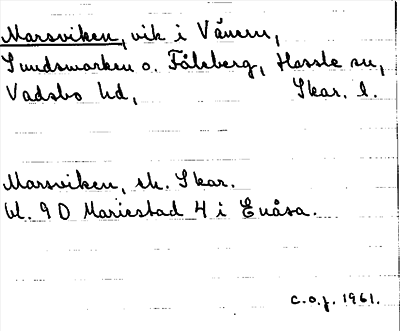 Marsviken, vik i Vänern,
Sundsmarken o. Fålsberg, Hassle sn,
Vadsbo hd, Skar. l.
Marsviken, sk. Skar.
bl. 9 D Mariestad 4 i Enåsa.
C.O.J. 1961.